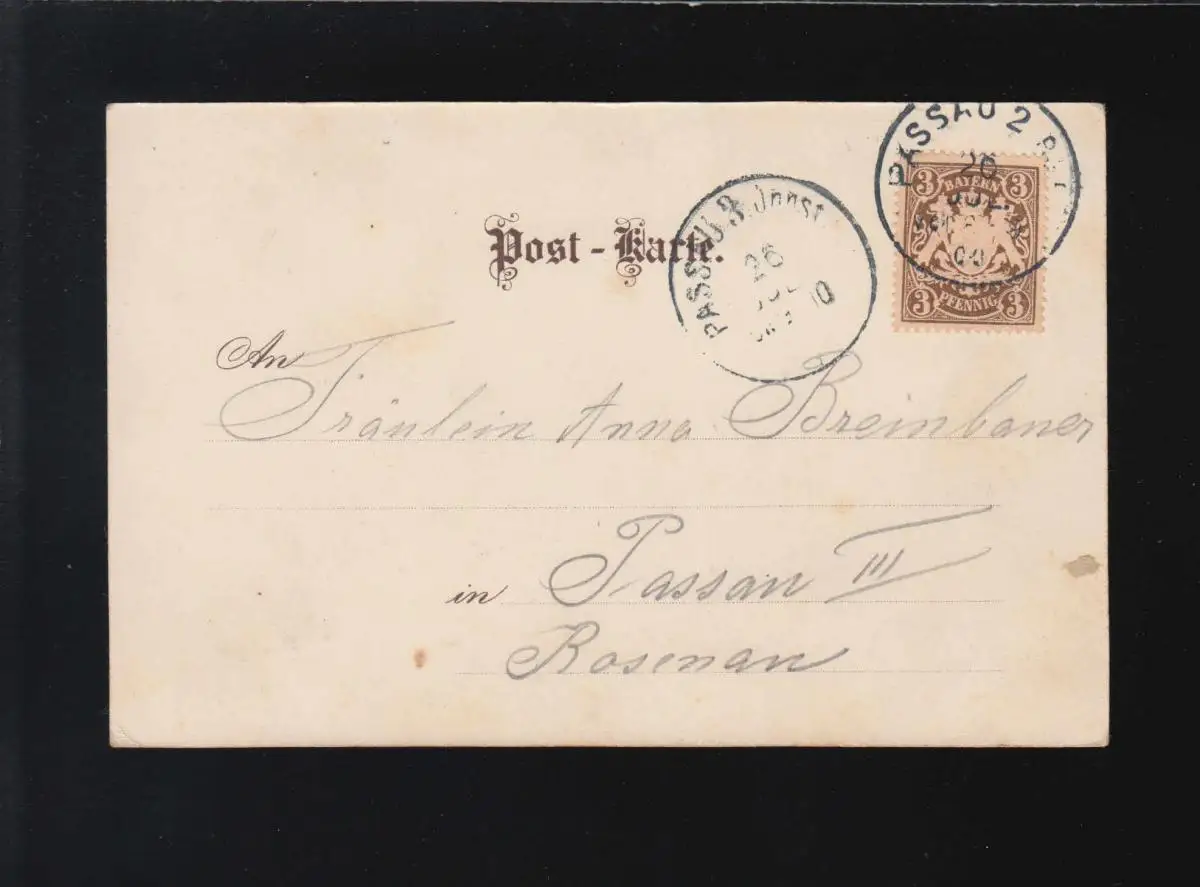 PASSAU 2 B
26
JUL
00
3 BAYERN 3
3 PFENNIG 3
PASSAU 3. Jnnst.
26
Post-Karte.
An Fräulein Anna Breinbauer
in Passau III
Rosenau